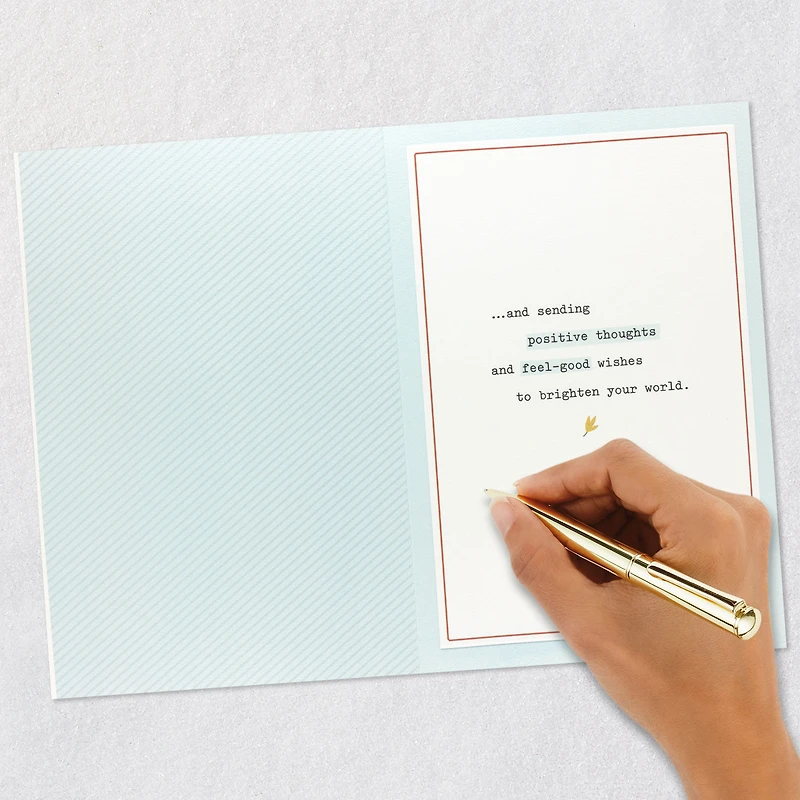 ...and sending
positive thoughts
and feel-good wishes
to brighten your world.